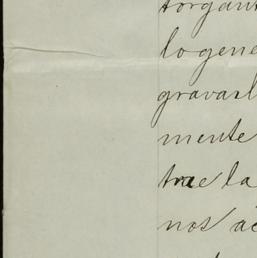 torgan
lo gene
gravarl
mente
true la
not ac